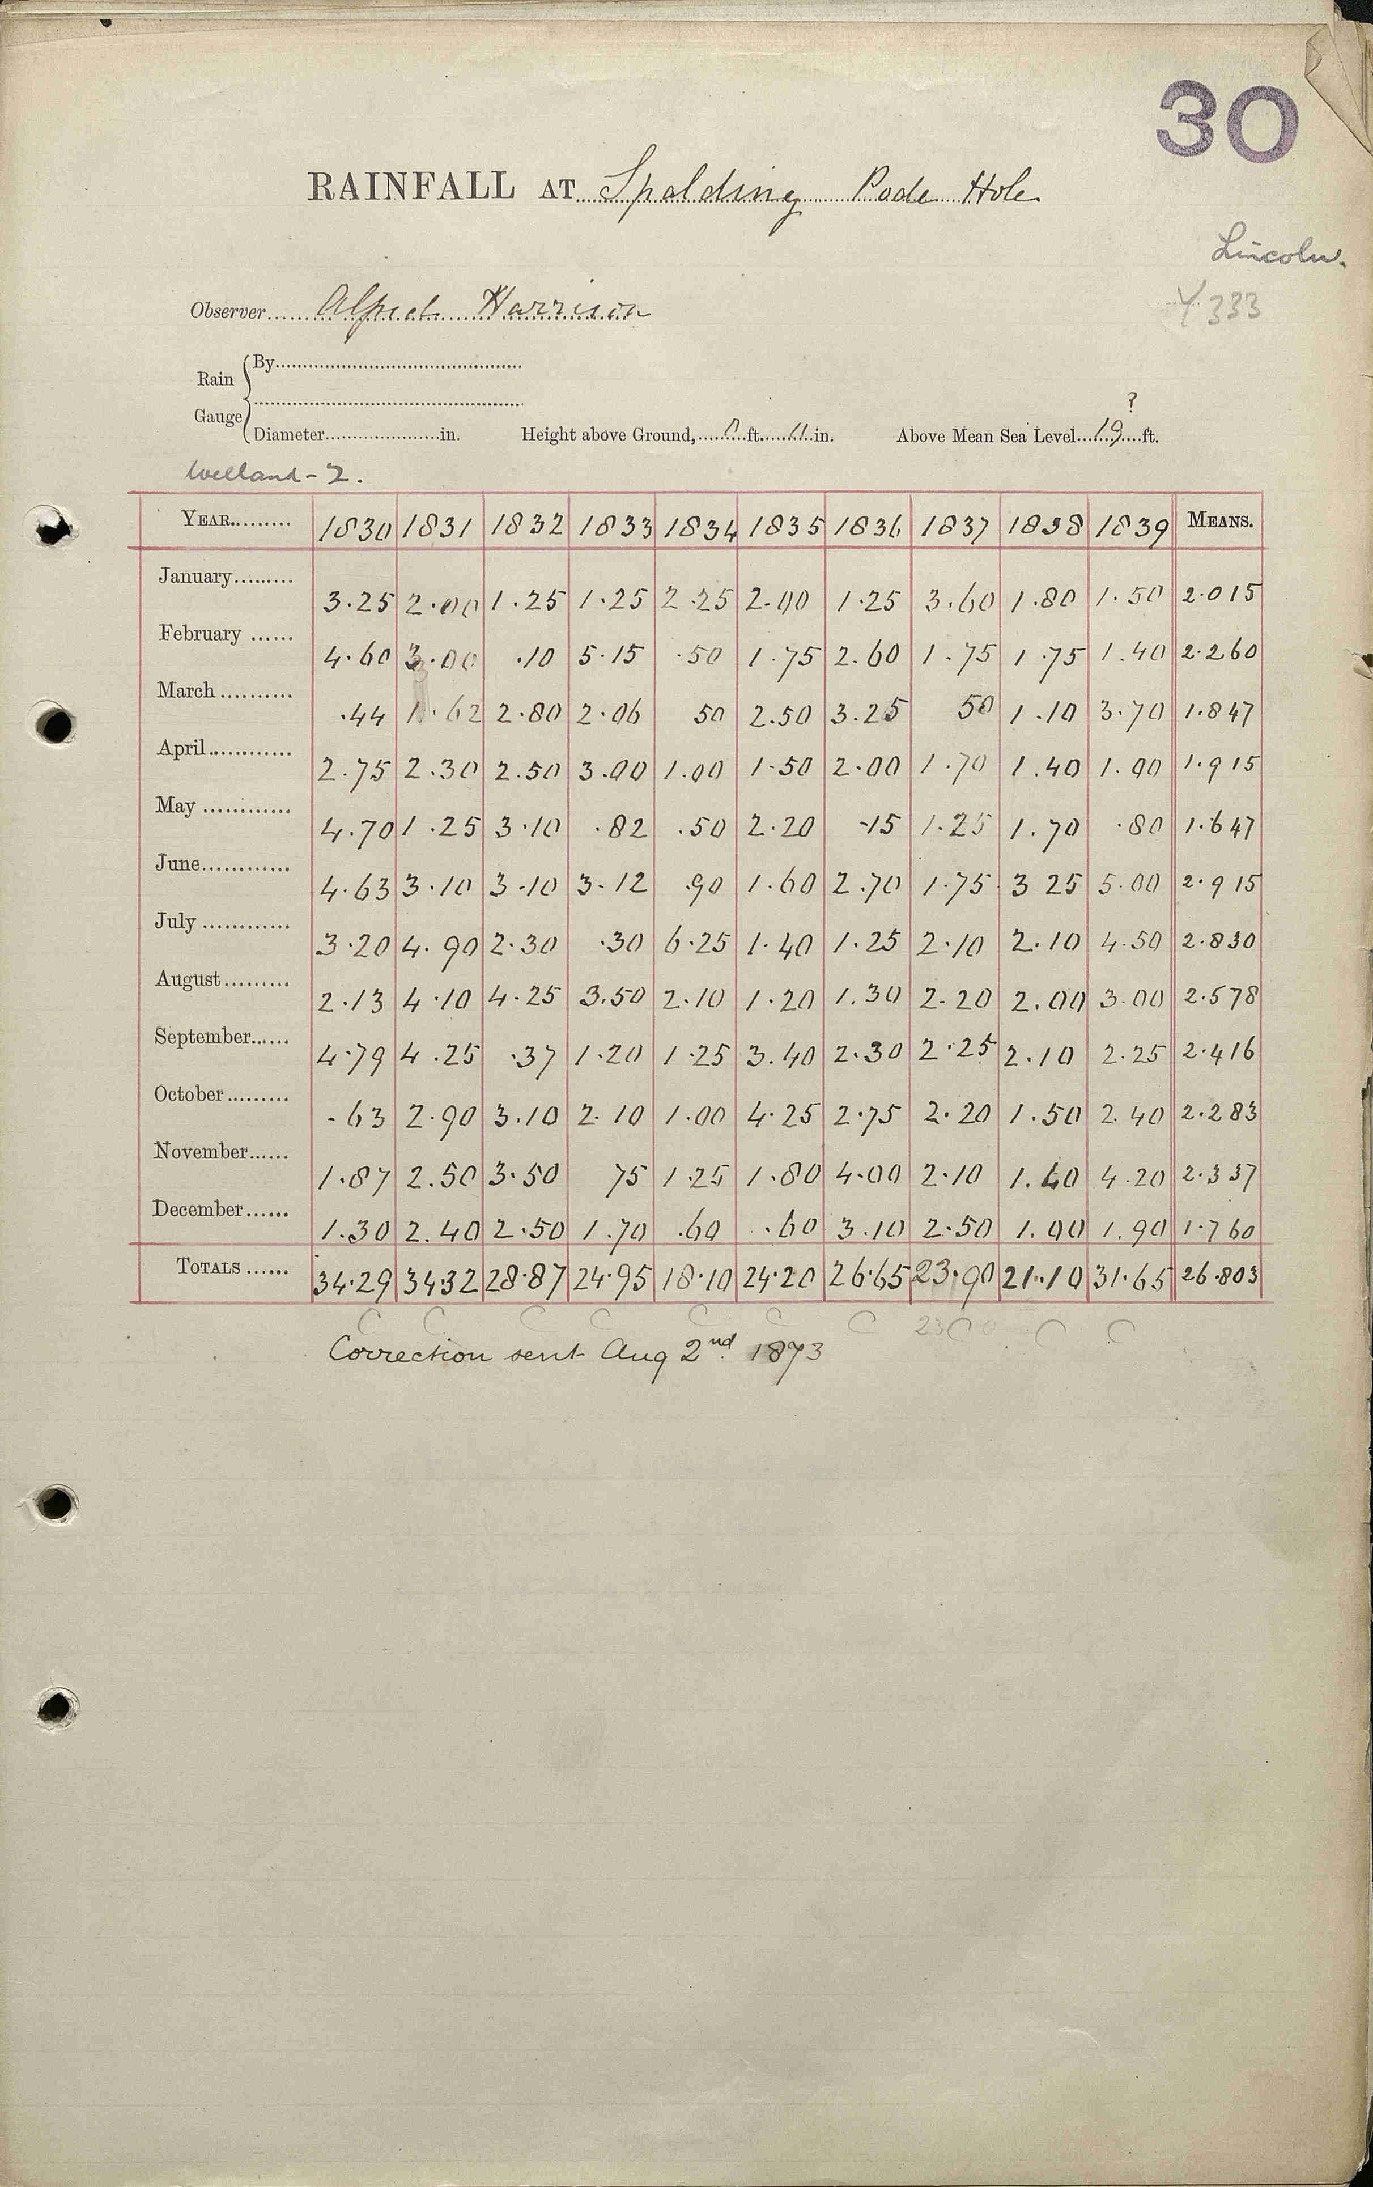 30
RAINFALL AT Spalding Pode Hole
Lincoln.
Y 333
Observer Alfred Harrison
Rain Gauge
By
Diameter in. Height above Ground, 0 ft. 11 in. Above Mean Sea Level 19 ? ft.
Welland - 2.
YEAR 1830 1831 1832 1833 1834 1835 1836 1837 1838 1839 MEANS.
January 3.25 2.00 1.25 1.25 2.25 2.00 1.25 3.60 1.80 1.50 2.015
February 4.60 3.00 .10 5.15 .50 1.75 2.60 1.75 1.75 1.40 2.260
March .44 1.62 2.80 2.06 50 2.50 3.25 50 1.10 3.70 1.847
April 2.75 2.30 2.50 3.00 1.00 1.50 2.00 1.70 1.40 1.00 1.915
May 4.70 1.25 3.10 .82 .50 2.20 .15 1.25 1.70 .80 1.647
June 4.63 3.10 3.10 3.12 .90 1.60 2.70 1.75 3 25 5.00 2.915
July 3.20 4.90 2.30 .30 6.25 1.40 1.25 2.10 2.10 4.50 2.830
August 2.13 4.10 4.25 3.50 2.10 1.20 1.30 2.20 2.00 3.00 2.578
September 4.79 4.25 .37 1.20 1.25 3.40 2.30 2.25 2.10 2.25 2.416
October .63 2.90 3.10 2.10 1.00 4.25 2.75 2.20 1.50 2.40 2.283
November 1.87 2.50 3.50 75 1.25 1.80 4.00 2.10 1.40 4.20 2.337
December 1.30 2.40 2.50 1.70 .60 .60 3.10 2.50 1.00 1.90 1.760
TOTALS 34.29 34.32 28.87 24.95 18.10 24.20 26.65 23.90 21.10 31.65 26.803
C C C C C C C C C C
Correction sent Aug 2nd 1873